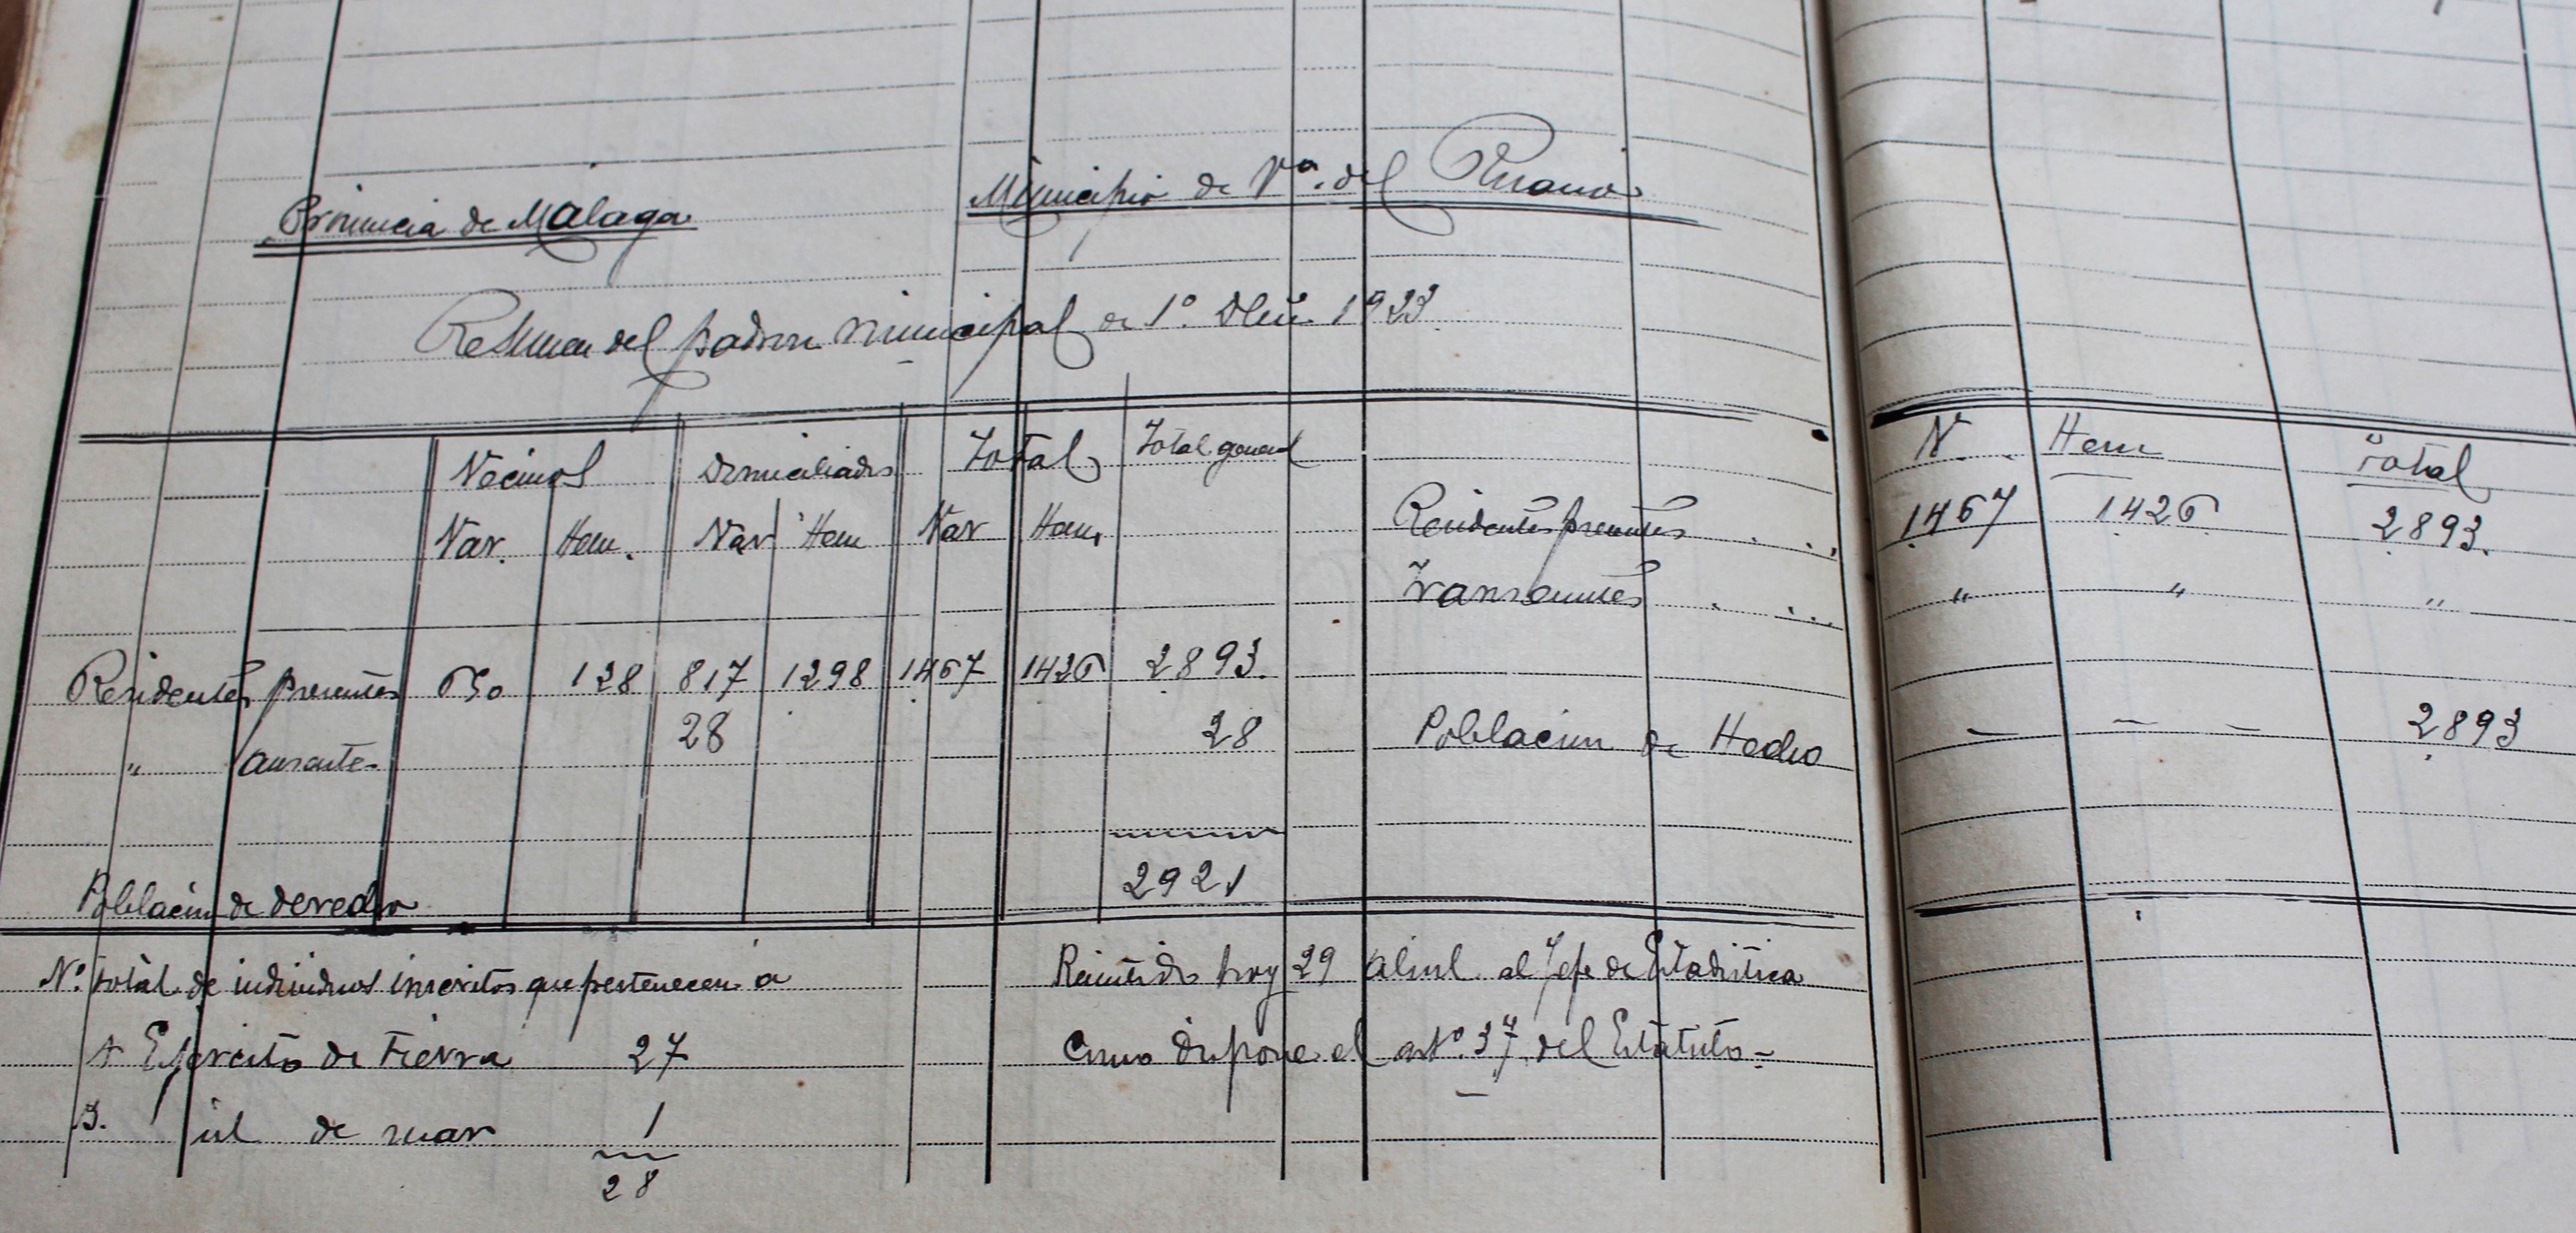 Provincia de Málaga
Municipio de Vª. del Rosario
Resumen del padron municipal de 1º. Dbre. 1923
Vecinos Domiciliados Total Total general
Var. Hem. Var Hem Var Hem.
Residentes presentes 650 128 817 1298 1467 1426 2893.
" ausentes 28 28
Poblacion de derecho 2921
V. Hem Total
Residentes presentes . . . 1467 1426 2893.
Transeuntes . . . " " "
Poblacion de Hecho — — — 2893
Nº. total de individuos inscritos que pertenecen á
A Ejercito de Tierra 27
B. id de mar 1
28
Remitido hoy 29 Abril al Jefe de Estadistica
como dispone el artº. 37 del Estatuto-